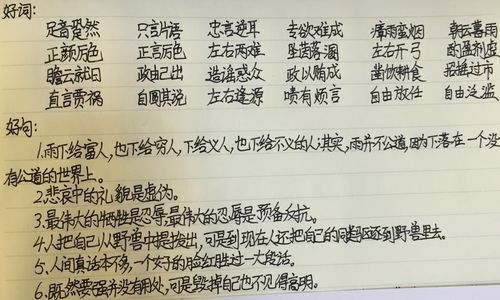 好词:
足音跫然 只言片语 忠言逆耳 专欲难成 瘴雨蛮烟 朝云暮雨
正颜厉色 正言厉色 左右两难 坠茵落溷 左右开弓 酌盈剂虚
瞻云就日 政由己出 造谣惑众 政以贿成 凿饮耕食 招摇过市
直言贾祸 自圆其说 左右逢源 啧有烦言 自由放任 自由泛滥
好句:
1.雨下给富人,也下给穷人,下给义人,也下给不义的人;其实,雨并不公道,因为下落在一个没
有公道的世界上。
2.悲哀中的礼貌是虚伪。
3.最伟大的牺牲是忍辱,最伟大的忍辱是预备反抗。
4.人把自己从野兽中提拔出,可是到现在人还把自己的同类驱逐到野兽里去。
5.人间真话本不多,一个女子的脸红胜过一大段话。
6.既然要强并没有用处,可是毁掉自己也不见得高明。